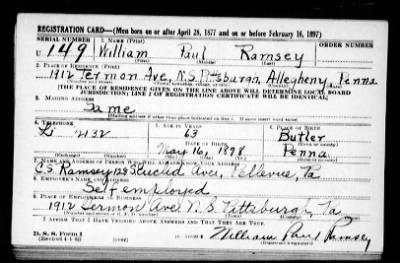 REGISTRATION CARD—(Men born on or after April 28, 1877 and on or before February 16, 1897)
SERIAL NUMBER 1. NAME (Print)
U 149 William Paul Ramsey
(First) (Middle) (Last)
2. PLACE OF RESIDENCE (Print)
1912 Termon Ave, N.S. Pittsburgh, Allegheny, Penna
[THE PLACE OF RESIDENCE GIVEN ON THE LINE ABOVE WILL DETERMINE LOCAL BOARD
JURISDICTION; LINE 2 OF REGISTRATION CERTIFICATE WILL BE IDENTICAL]
3. MAILING ADDRESS
Same
4. TELEPHONE 5. AGE IN YEARS 6. PLACE OF BIRTH
Li 2132 63 Butler
DATE OF BIRTH (Town or county)
May 16, 1898 Penna.
(Exchange) (Number) (Mo.) (Day) (Yr.) (State or country)
7. NAME AND ADDRESS OF PERSON WHO WILL ALWAYS KNOW YOUR ADDRESS
C.S. Ramsey Euclid Ave, Bellevue, Pa
8. EMPLOYER'S NAME AND ADDRESS
Self employed
9. PLACE OF EMPLOYMENT OR BUSINESS
1912 Termon Ave N.S. Pittsburgh, Pa
I AFFIRM THAT I HAVE VERIFIED ABOVE ANSWERS AND THAT THEY ARE TRUE.
D. S. S. Form 1
(Revised 4-1-42)
William Paul Ramsey
(Registrant's signature)